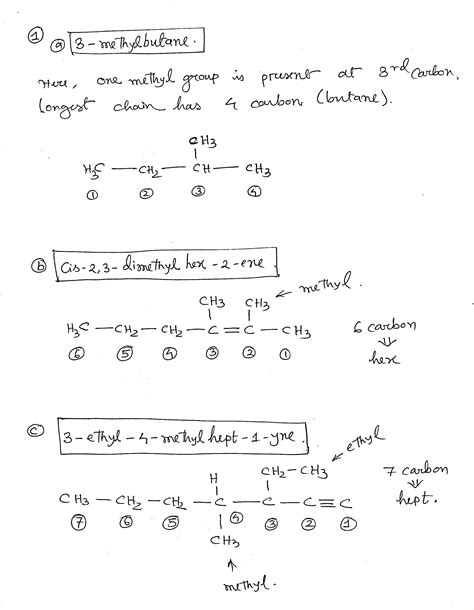 ① ⓐ 3-methylbutane.
Here, one methyl group is present at 3rd carbon.
longest chain has 4 carbon (butane).
CH3
H3C — CH2 — CH — CH3
① ② ③ ④
ⓑ Cis-2,3-dimethyl hex-2-ene
CH3 CH3 ← methyl.
H3C — CH2 — CH2 — C = C — CH3
⑥ ⑤ ④ ③ ② ①
6 carbon
⇓
hex
ⓒ 3-ethyl-4-methyl hept-1-yne.
ethyl
H CH2-CH3
CH3 — CH2 — CH2 — C — C — C ≡ C
⑦ ⑥ ⑤ ④ ③ ② ①
CH3
↑
methyl.
7 carbon
⇓
hept.